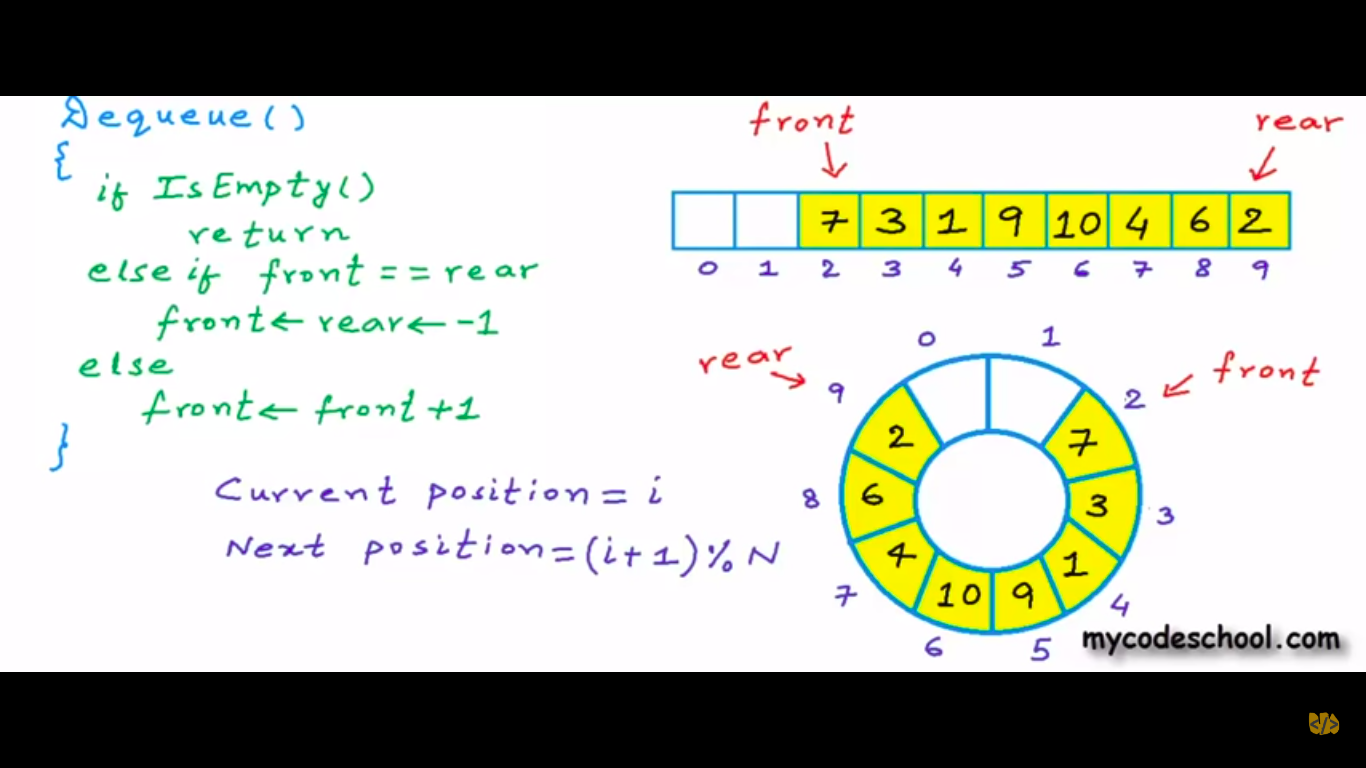 Dequeue()
{
if IsEmpty()
return
else if front == rear
front ← rear ← -1
else
front ← front + 1
}
Current position = i
Next position = (i+1) % N
front
rear
7 3 1 9 10 4 6 2
0 1 2 3 4 5 6 7 8 9
0 1
rear
front
9
2
2
7
8
6
3
3
4
1
7
10
9
4
6
5
mycodeschool.com
</>